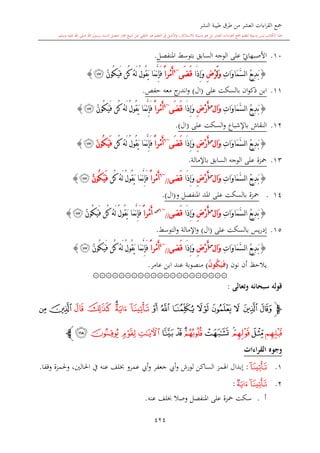 جمع القراءات العشر من طرق طيبة النشر
١٠. الأصبهاني على الوجه السابق بتوسط المنفصل.
﴿ بَدِيعُ السَّمَاوَاتِ وَالْأَرْضِ وَإِذَا قَضَى أَمْرًا فَإِنَّمَا يَقُولُ لَهُ كُنْ فَيَكُونُ ﴾
١١. ابن ذكوان بالسكت على (ال) واندرج معه حفص.
﴿ بَدِيعُ السَّمَاوَاتِ وَالْأَرْضِ وَإِذَا قَضَى أَمْرًا فَإِنَّمَا يَقُولُ لَهُ كُنْ فَيَكُونُ ﴾
١٢. النقاش بالإشباع والسكت على (ال).
﴿ بَدِيعُ السَّمَاوَاتِ وَالْأَرْضِ وَإِذَا قَضَى أَمْرًا فَإِنَّمَا يَقُولُ لَهُ كُنْ فَيَكُونُ ﴾
١٣. حمزة على الوجه السابق بالإمالة.
﴿ بَدِيعُ السَّمَاوَاتِ وَالْأَرْضِ وَإِذَا قَضَى أَمْرًا فَإِنَّمَا يَقُولُ لَهُ كُنْ فَيَكُونُ ﴾
١٤. حمزة بالسكت على المد المنفصل و(ال).
﴿ بَدِيعُ السَّمَاوَاتِ وَالْأَرْضِ وَإِذَا قَضَى أَمْرًا فَإِنَّمَا يَقُولُ لَهُ كُنْ فَيَكُونُ ﴾
١٥. إدريس بالسكت على (ال) والإمالة والتوسط.
﴿ بَدِيعُ السَّمَاوَاتِ وَالْأَرْضِ وَإِذَا قَضَى أَمْرًا فَإِنَّمَا يَقُولُ لَهُ كُنْ فَيَكُونُ ﴾
يلاحظ أن نون (فَيَكُونَ) منصوبة عند ابن عامر.
قوله سبحانه وتعالى :
﴿ وَقَالَ الَّذِينَ لَا يَعْلَمُونَ لَوْلَا يُكَلِّمُنَا اللَّهُ أَوْ تَأْتِينَا آيَةٌ كَذَلِكَ قَالَ الَّذِينَ مِنْ
قَبْلِهِمْ مِثْلَ قَوْلِهِمْ تَشَابَهَتْ قُلُوبُهُمْ قَدْ بَيَّنَّا الْآيَاتِ لِقَوْمٍ يُوقِنُونَ ﴾
وجوه القراءات
١. تَأْتِينَا : إبدال الهمز الساكن لورش وأبي جعفر وأبي عمرو بخلف عنه في الحالين، ولحمزة وقفا.
٢. تَأْتِينَا آيَةٌ :
أ . سكت حمزة على المنفصل وصلا بخلف عنه.
٤٢٤